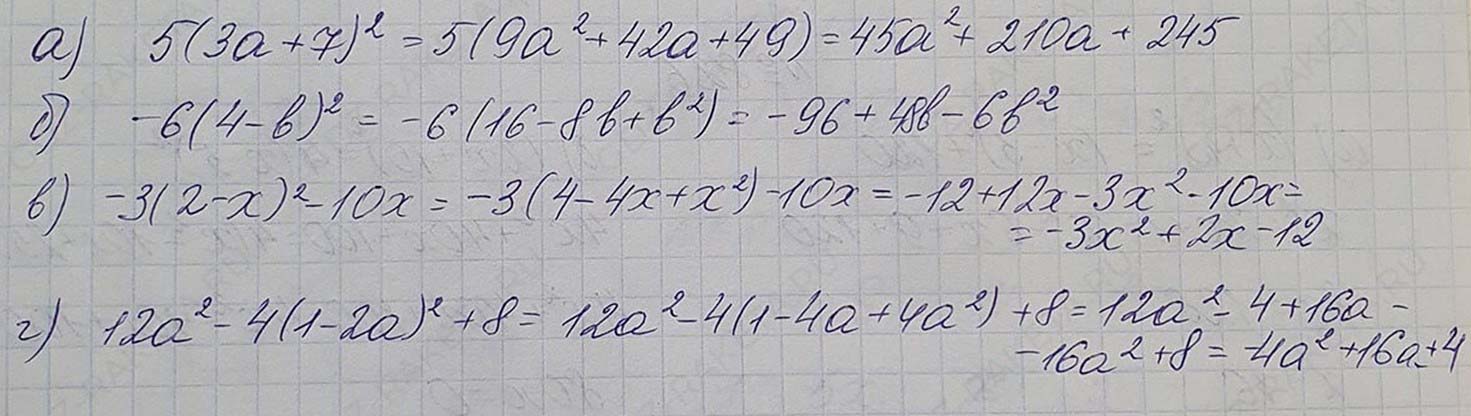 а) 5(3a+7)² = 5(9a²+42a+49) = 45a²+210a+245
б) -6(4-b)² = -6(16-8b+b²) = -96+48b-6b²
в) -3(2-x)²-10x = -3(4-4x+x²)-10x = -12+12x-3x²-10x =
= -3x²+2x-12
г) 12a²-4(1-2a)²+8 = 12a²-4(1-4a+4a²)+8 = 12a²-4+16a-
-16a²+8 = -4a²+16a+4